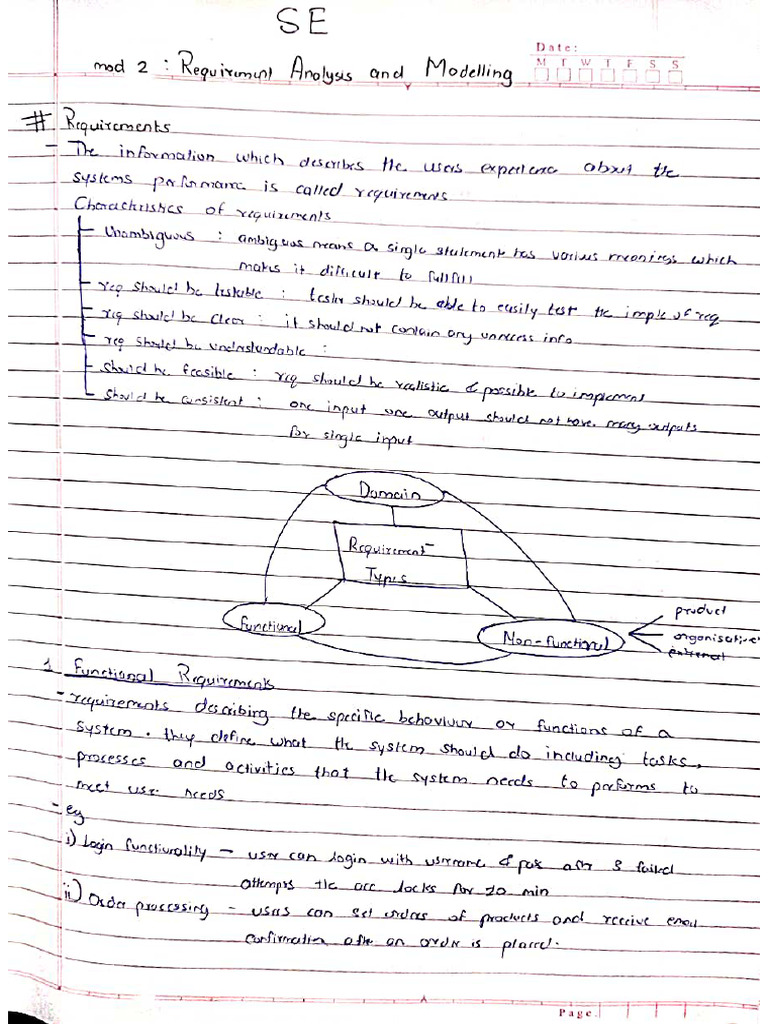 SE
Date:
mod 2 : Requirement Analysis and Modelling
M T W T F S S
# Requirements
- The information which describes the users experience about the
systems performance is called requirements
Characteristics of requirements
- Unambiguous : ambiguous means a single statement has various meanings which
makes it difficult to fullfill
- req should be testable : tester should be able to easily test the imple of req
- req should be clear : it should not contain any unnecess info
- req should be understandable :
- should be feasible : req should be realistic & possible to implement
- should be consistent : one input one output should not have many outputs
for single input
Domain
Requirement
Types
functional
Non-functional
product
organisative
external
1 functional Requirements
- requirements describing the specific behaviour or functions of a
system. they define what the system should do including tasks,
processes and activities that the system needs to performs to
meet user needs
- eg
i) Login functionality - user can login with username & pass after 3 failed
attempts the acc locks for 20 min
ii) Order processing - users can orders of products and receive email
confirmation after an order is placed.
Page.